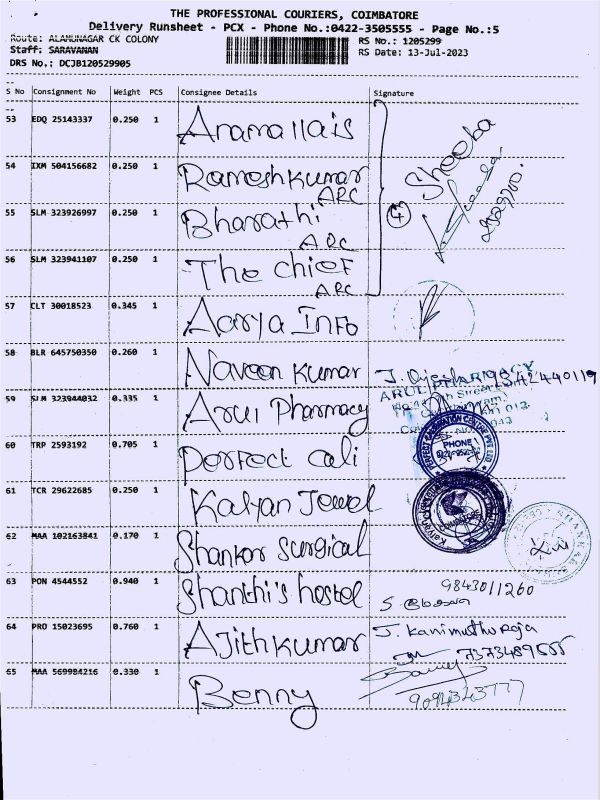 THE PROFESSIONAL COURIERS, COIMBATORE
Delivery Runsheet - PCX - Phone No.:0422-3505555 - Page No.:5
Route: ALAMUNAGAR CK COLONY
RS No.: 1205299
Staff: SARAVANAN
RS Date: 13-Jul-2023
DRS No.: DCJB120529905
S No Consignment No Weight PCS Consignee Details Signature
53 EDQ 25143337 0.250 1 Anamallais
Sheeba
54 IXM 504156682 0.250 1 Rameshkumar
ARC
4
55 SLM 323926997 0.250 1 Bharathi
ARC
56 SLM 323941107 0.250 1 The chief
ARC
57 CLT 30018523 0.345 1 Aarya Info
58 BLR 645750350 0.260 1 Naveen Kumar
9842440119
59 SLM 323944032 0.335 1 Arul Pharmacy
ARUL PHARMACY
60 TRP 2593192 0.705 1 perfect cali
PERFECT CALIBRATION CENTRE PVT LTD
PHONE
61 TCR 29622685 0.250 1 Kalyan Jewel
COIMBATORE
62 MAA 102163841 0.170 1 Shankar surgical
63 PON 4544552 0.940 1 Shanthi's hostel
9843011260
64 PRO 15023695 0.760 1 AJithkumar
J. Kanimuthu Roja
65 MAA 569984216 0.330 1 Benny